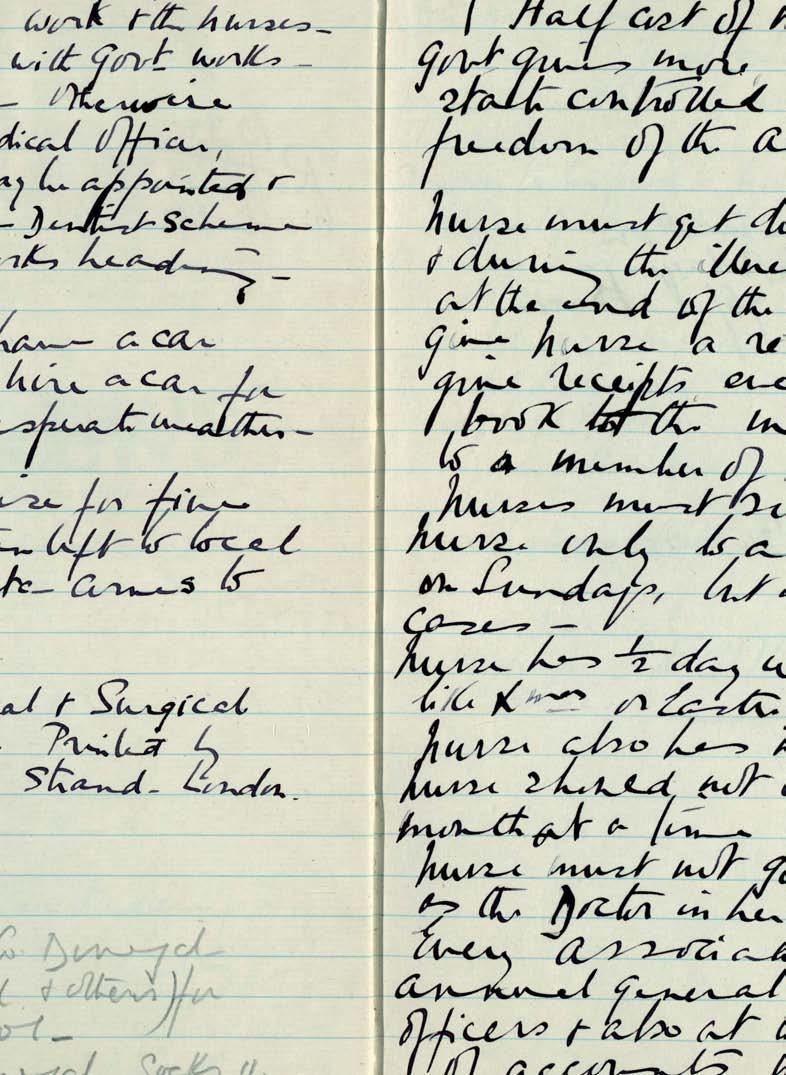 work & the nurses -
with Govt works -
- otherwise
dical Officer,
ay be appointed &
- Dentist Scheme
rks heading -
have a car
hire a car for
sperate weather -
for fine
left to local
comes to
al & Surgical
Printed by
Strand - London.
& others) for
ol -
Socks
Half cost of
Govt gives more
state controlled
freedom of the a
nurse must get d
& during the illne
at the end of the
give nurse a re
give receipts
book to the
to a member of
nurses must
nurse only to a
on Sundays, but
cases -
nurse has ½ day
like Xmas or Easte
nurse also has
nurse should not
month at a time
nurse must not go
as the Doctor in her
Every associa
annual general
officers & also at
of accounts